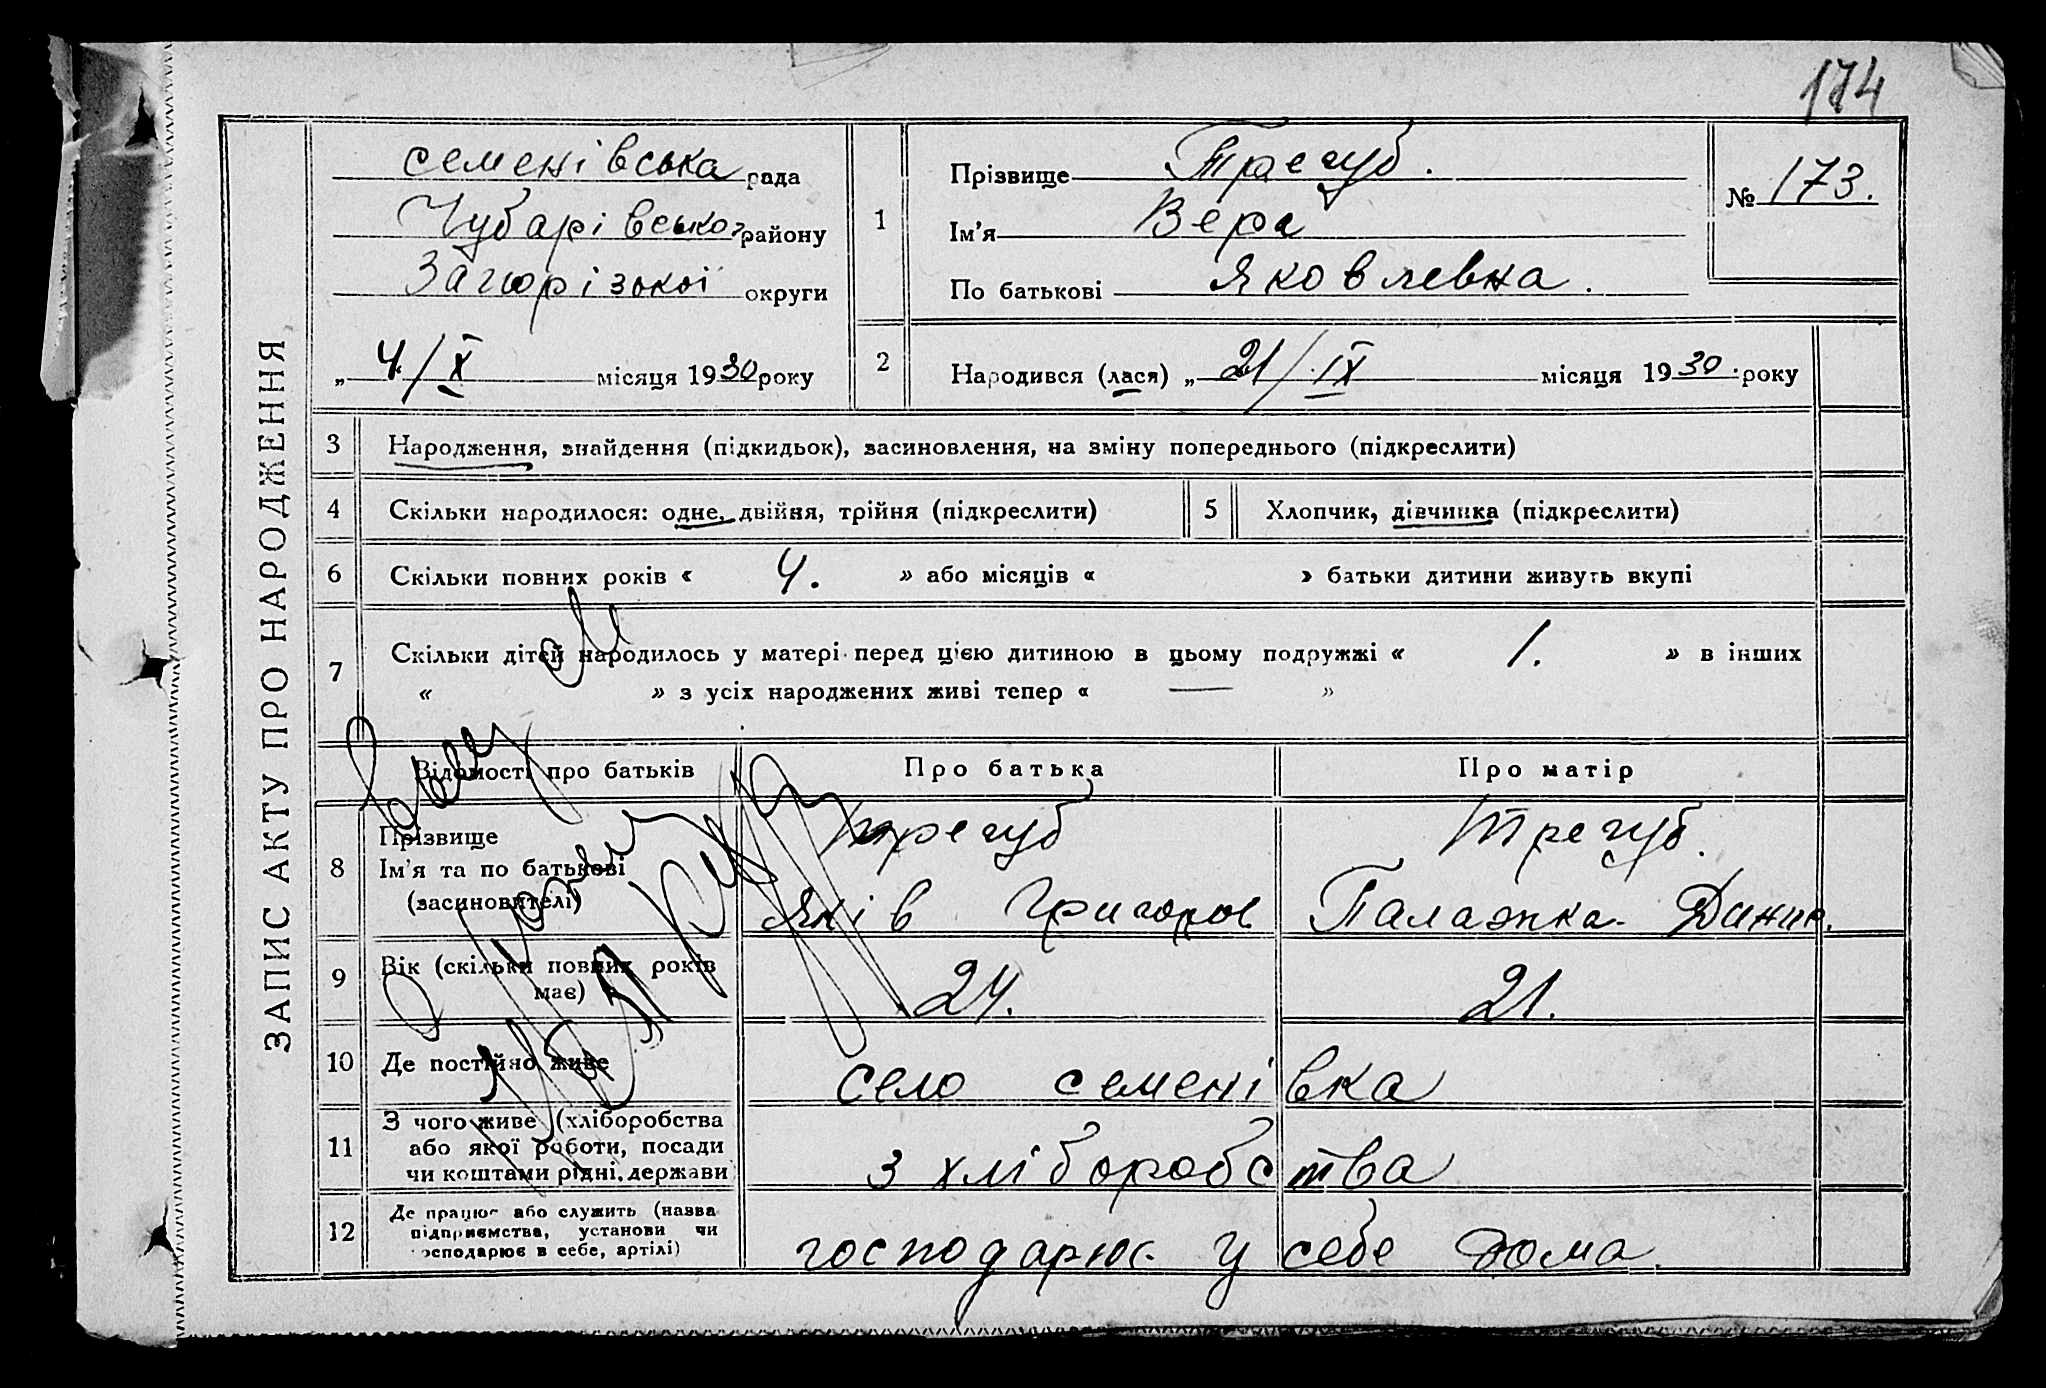 174
ЗАПИС АКТУ ПРО НАРОДЖЕННЯ
семенівська рада
Чубарівської району
Загорізокої округи
„ 4/X місяця 1930 року
1
Прізвище Трегуб.
Ім'я Вера
По батькові Яковлевна.
№ 173.
2
Народився (лася) „ 21/IX місяця 1930 року
3 Народження, знайдення (підкидьок), засиновлення, на зміну попереднього (підкреслити)
4 Скільки народилося: одне, двійня, трійня (підкреслити)
5 Хлопчик, дівчинка (підкреслити)
6 Скільки повних років « 4. » або місяців « » батьки дитини живуть вкупі
7 Скільки дітей народилось у матері перед цією дитиною в цьому подружжі « 1. » в інших
« » з усіх народжених живі тепер « — »
Відомості про батьків Про батька Про матір
8 Прізвище
Ім'я та по батькові
(засиновителі)
трегуб
Яків Григоров
Трегуб.
Палажка Данил.
9 Вік (скільки повних років
має)
24. 21.
10 Де постійно живе село семенівка
11 З чого живе (хліборобства
або якої роботи, посади
чи коштами рідні, держави
з хліборобства
12 Де працює або служить (назва
підприємства, установи чи
господарює в себе, артілі)
господарює у себе дома